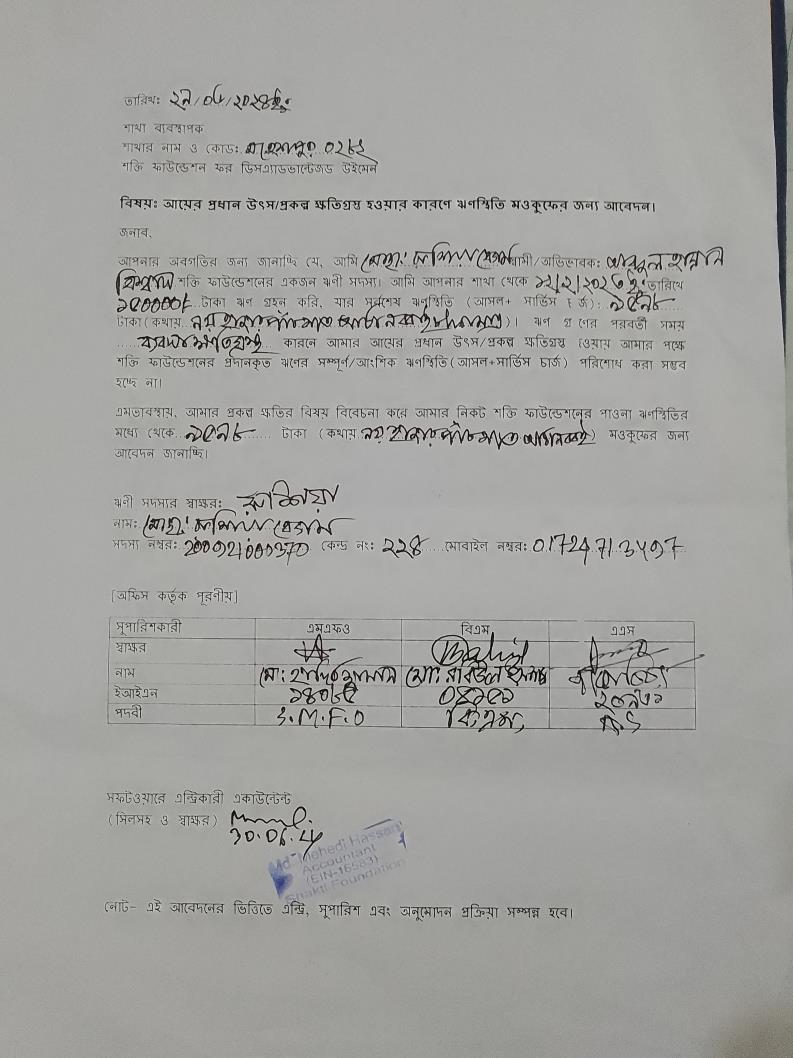 তারিখঃ ২৯/০৬/২০২৪ইং
শাখা ব্যবস্থাপক
শাখার নাম ও কোডঃ ০২৮২
শক্তি ফাউন্ডেশন ফর ডিসএ্যাডভান্টেজড উইমেন
বিষয়ঃ আয়ের প্রধান উৎস/প্রকল্প ক্ষতিগ্রস্থ হওয়ার কারণে ঋণস্থিতি মওকুফের জন্য আবেদন।
জনাব,
আপনার অবগতির জন্য জানাচ্ছি যে, আমি মোছাঃ রাশিয়া বেগম স্বামী/অভিভাবকঃ আব্দুল হান্নান
বিশ্বাস শক্তি ফাউন্ডেশনের একজন ঋণী সদস্য। আমি আপনার শাখা থেকে ১২/২/২০২৩ইং তারিখে
টাকা ঋণ গ্রহন করি, যার সর্বশেষ ঋণস্থিতি (আসল+ সার্ভিস চার্জ): ৯৫৯৮
টাকা (কথায় নয় হাজার পাঁচশত আটানব্বই টাকা মাত্র)। ঋণ গ্রহণের পরবর্তী সময়
ব্যবসা ক্ষতিগ্রস্থ কারনে আমার আয়ের প্রধান উৎস/প্রকল্প ক্ষতিগ্রস্থ হওয়ায় আমার পক্ষে
শক্তি ফাউন্ডেশনের প্রদানকৃত ঋণের সম্পূর্ণ/আংশিক ঋণস্থিতি (আসল+সার্ভিস চার্জ) পরিশোধ করা সম্ভব
হচ্ছে না।
এমতাবস্থায়, আমার প্রকল্প ক্ষতির বিষয় বিবেচনা করে আমার নিকট শক্তি ফাউন্ডেশনের পাওনা ঋণস্থিতির
মধ্যে থেকে ৯৫৯৮ টাকা (কথায় নয় হাজার পাঁচশত আটানব্বই) মওকুফের জন্য
আবেদন জানাচ্ছি।
ঋণী সদস্যের স্বাক্ষরঃ রাশিয়া
নামঃ মোছাঃ রাশিয়া বেগম
সদস্য নম্বরঃ কেন্দ্র নংঃ ২২৪ মোবাইল নম্বরঃ
[অফিস কর্তৃক পূরণীয়]
সুপারিশকারী এমএফও বিএম এএস
স্বাক্ষর
নাম মোঃ মোঃ রবিউল ইসলাম
ইআইএন
পদবী S.M.F.O বিএম এএস
সফটওয়ারে এন্ট্রিকারী একাউন্টেন্ট
(সিলসহ ও স্বাক্ষর)
30.06.24
Md. Mehedi Hassan
Accountant
(EIN-16583)
Shakti Foundation
নোট- এই আবেদনের ভিত্তিতে এন্ট্রি, সুপারিশ এবং অনুমোদন প্রক্রিয়া সম্পন্ন হবে।